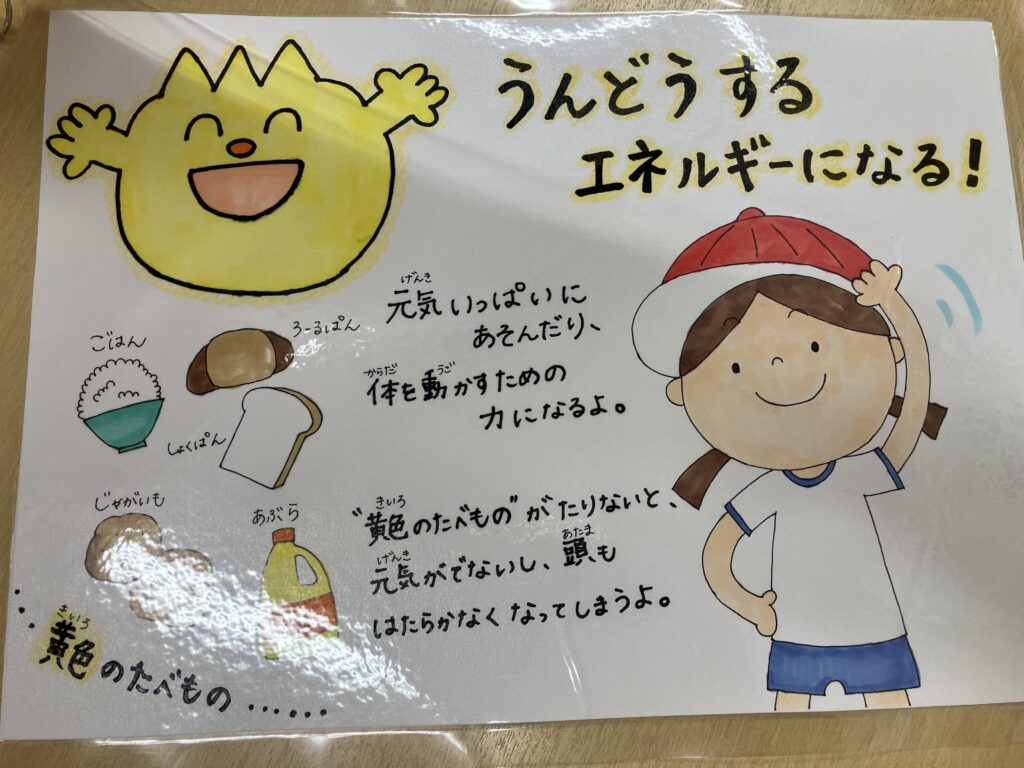 うんどうする
エネルギーになる!
ごはん
ろーるぱん
しょくぱん
じゃがいも
あぶら
げんき
元気いっぱいに
あそんだり、
からだ うご
体を動かすための
力になるよ。
きいろ
"黄色のたべもの"がたりないと、
げんき あたま
元気がでないし、頭も
はたらかなくなってしまうよ。
きいろ
黄色のたべもの……